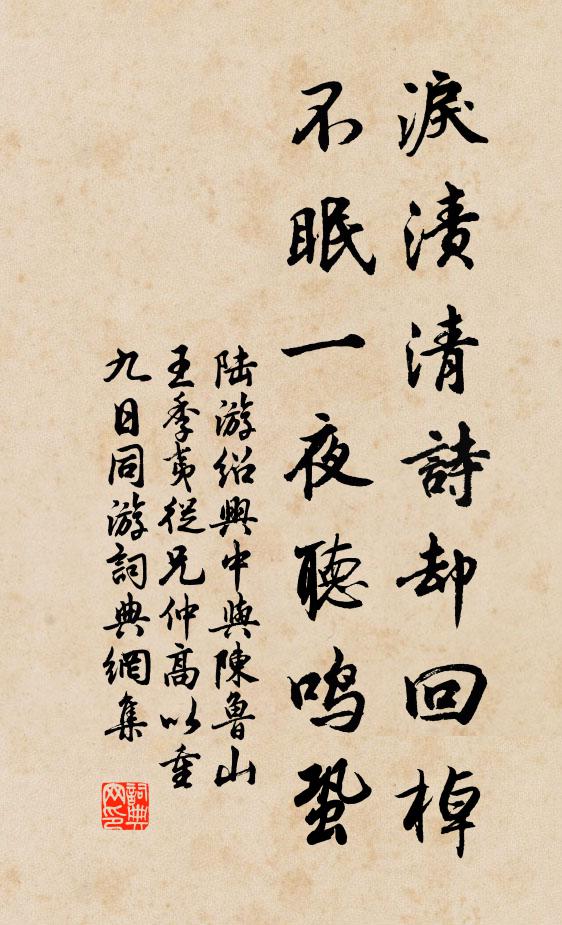 淚漬清詩却回棹
不眠一夜聽鳴蛩
陆游绍興中與陳魯山
王季夷從兄仲高以重
九日同游詞典網集
詞典
网印